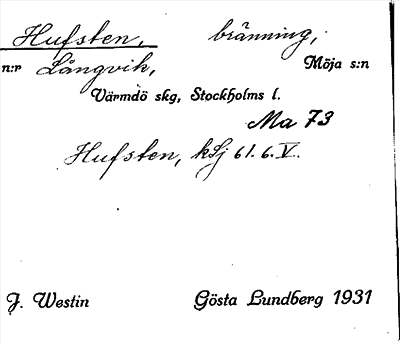 Hufsten, bränning,
n:r Långvik, Möja s:n
Värmdö skg, Stockholms l.
Ma 73
Hufsten, ksj 61. 6. V.
J. Westin Gösta Lundberg 1931